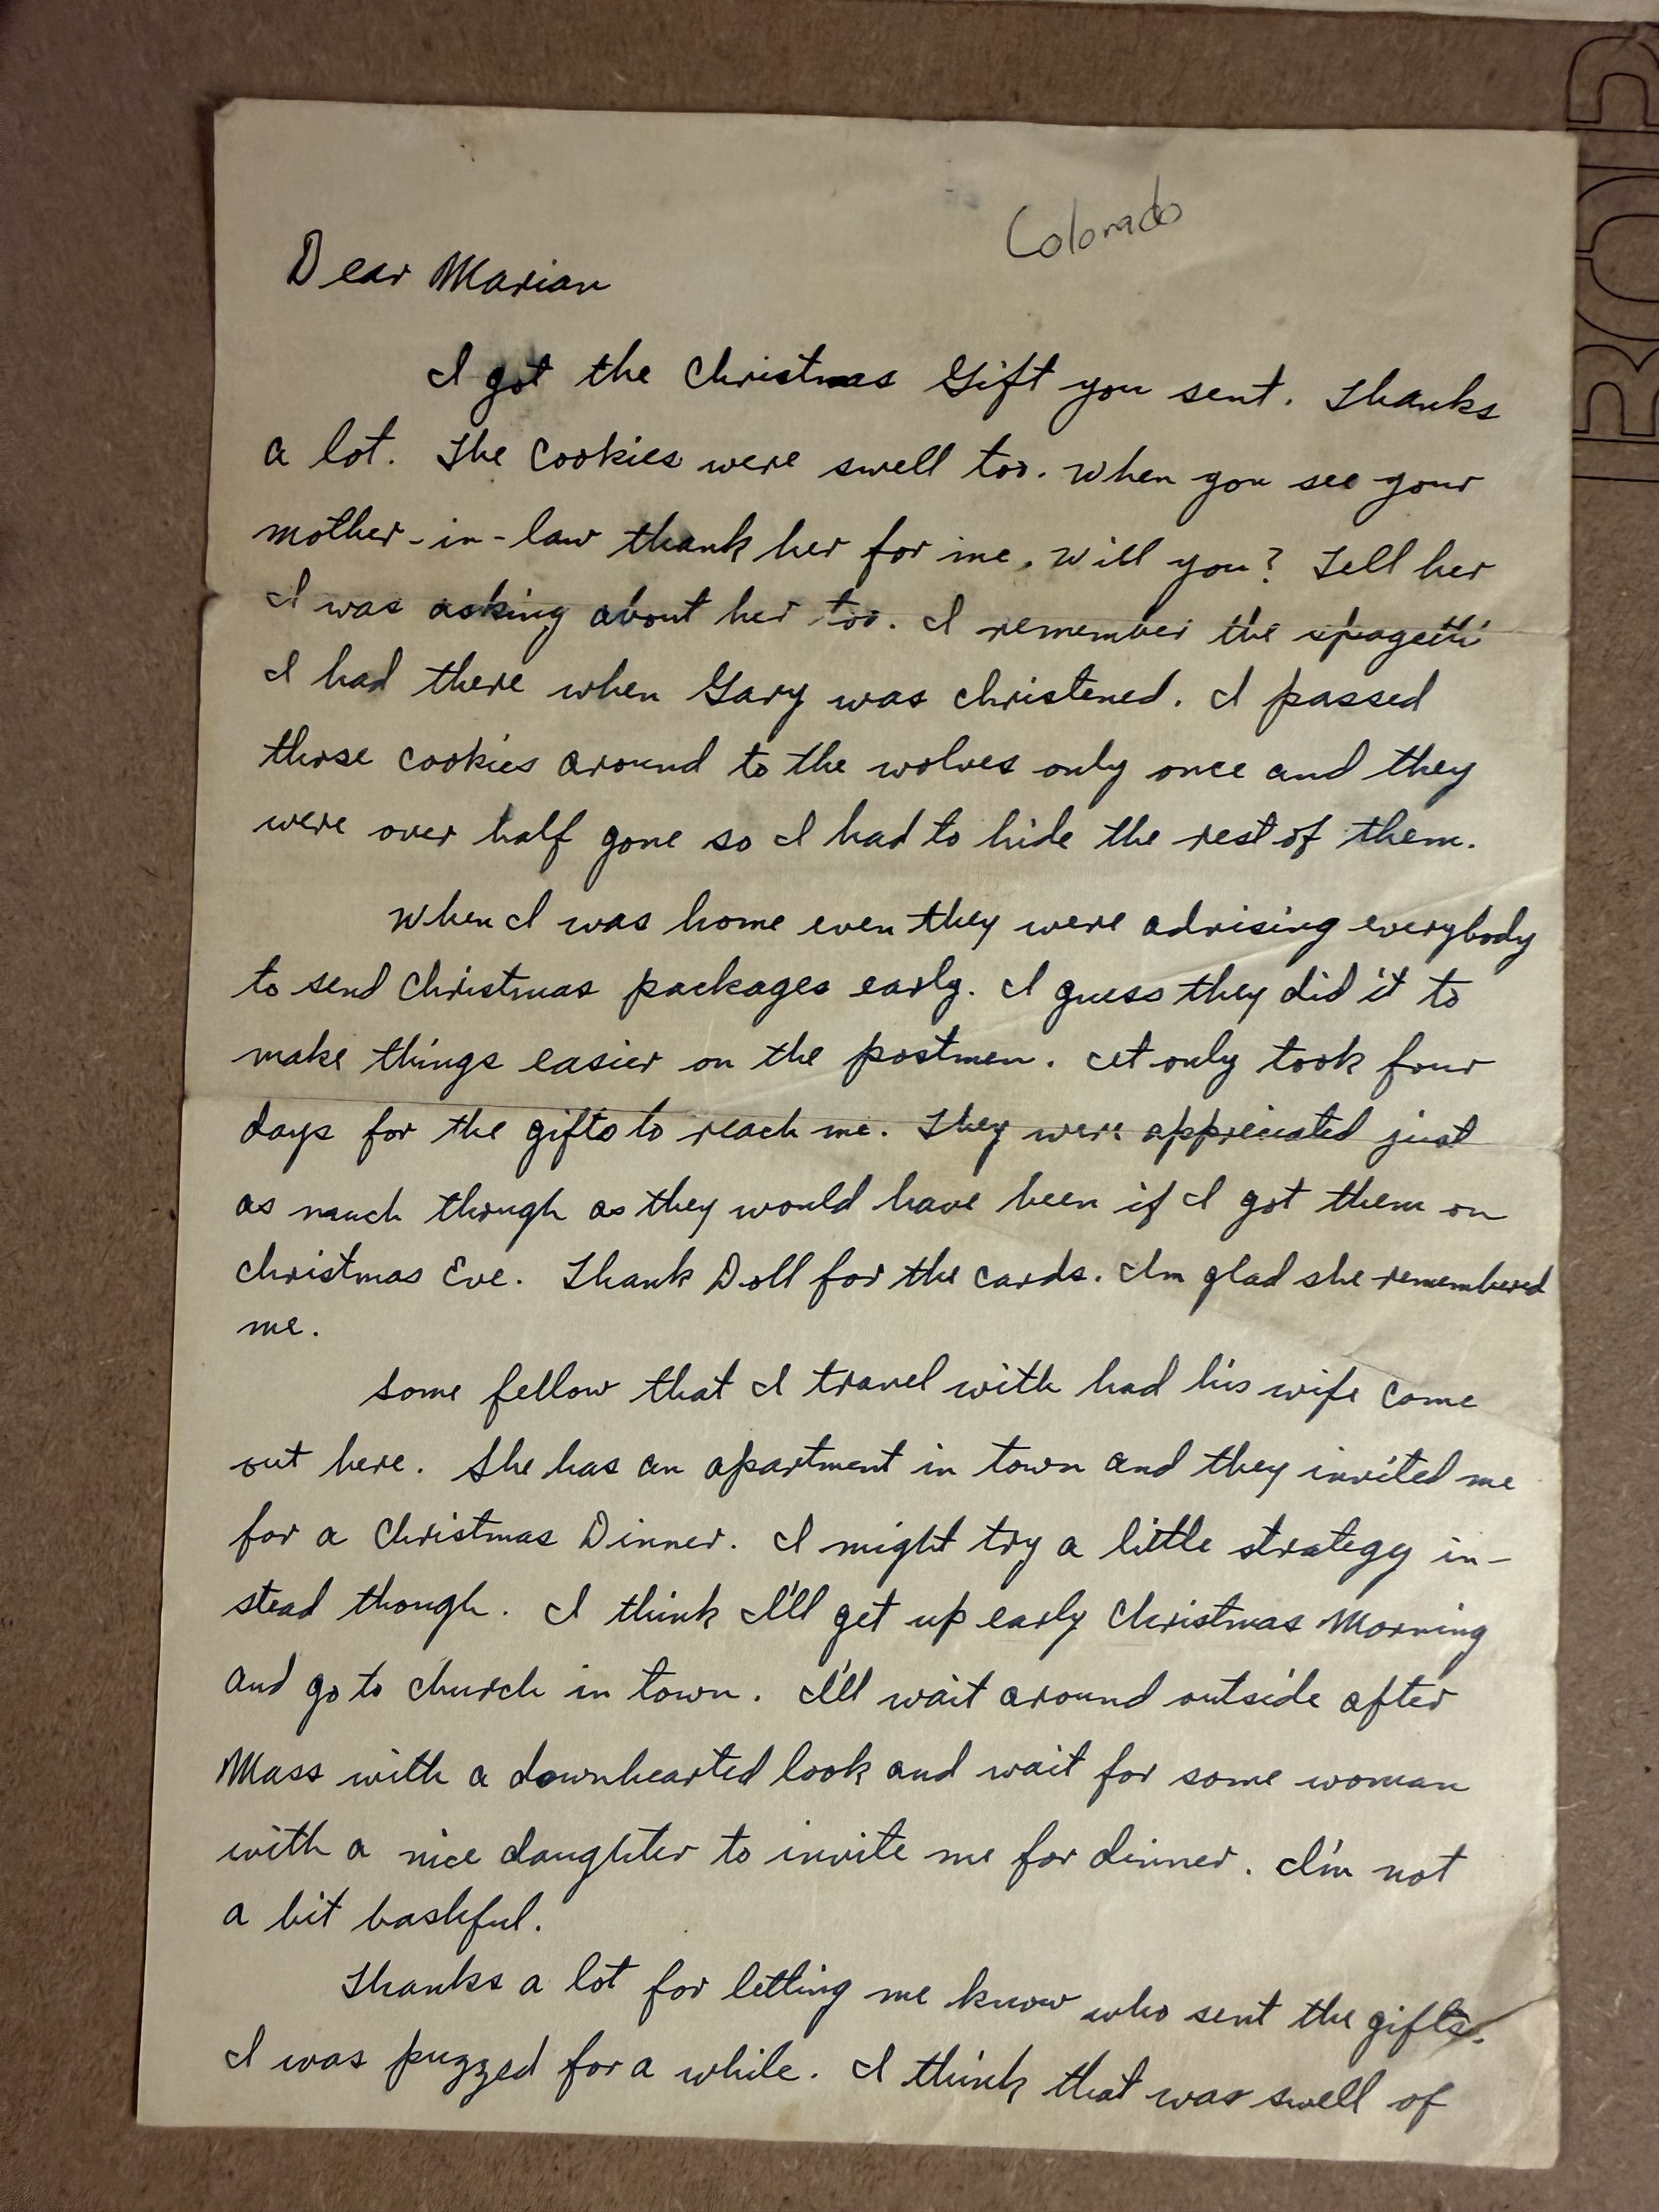 Colorado
Dear Marian
I got the Christmas Gift you sent. Thanks
a lot. The cookies were swell too. When you see your
mother-in-law thank her for me. Will you? Tell her
I was asking about her too. I remember the spagetti
I had there when Gary was christened. I passed
those cookies around to the wolves only once and they
were over half gone so I had to hide the rest of them.
When I was home even they were advising everybody
to send Christmas packages early. I guess they did it to
make things easier on the postmen. It only took four
days for the gifts to reach me. They were appreciated just
as much though as they would have been if I got them on
Christmas Eve. Thank Doll for the cards. Im glad she remembered
me.
Some fellow that I travel with had his wife come
out here. She has an apartment in town and they invited me
for a Christmas Dinner. I might try a little strategy in-
stead though. I think I'll get up early Christmas Morning
and go to church in town. I'll wait around outside after
Mass with a downhearted look and wait for some woman
with a nice daughter to invite me for dinner. I'm not
a bit bashful.
Thanks a lot for letting me know who sent the gifts.
I was puzzed for a while. I think that was swell of